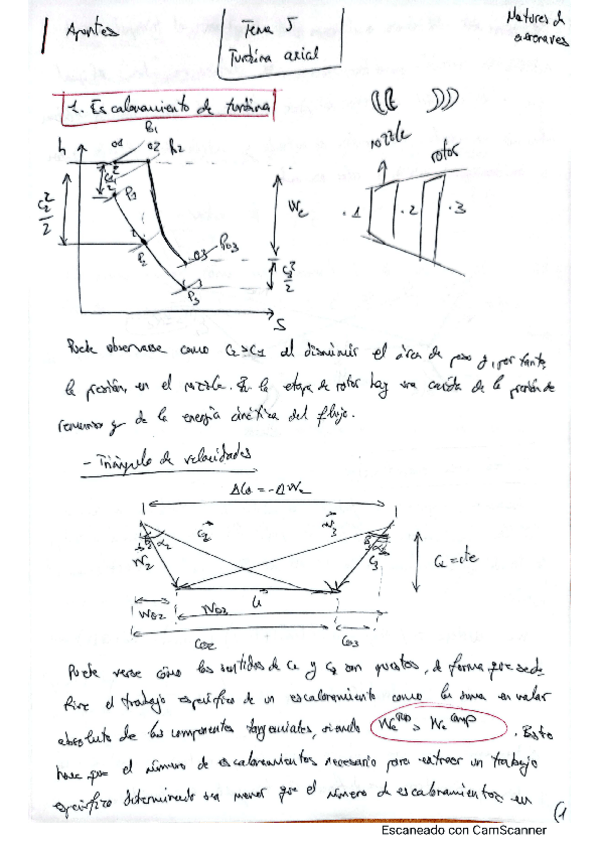 Apuntes
Tema 5
Turbina axial
Motores de
aeronaves
1. Escalonamiento de turbina
h
P01
01
02
P02
C1²/2
C2²/2
P1
P2
03
P03
P3
C3²/2
We
S
nozzle
rotor
.1
.2
.3
Puede observarse como C2>C1 al disminuir el área de paso y, por tanto,
la presión, en el nozzle. En la etapa de rotor hay una caída de la presión de
remanso y de la energía cinética del flujo.
- Triángulo de velocidades
ΔCθ = -ΔWe
β2
α2
C2
W3
β3
α3
W2
C3
Ca = cte
u
Wθ2
Wθ3
Cθ2
Cθ3
Puede verse cómo los sentidos de C2 y C3 son opuestos, de forma que se de
fine el trabajo específico de un escalonamiento como la suma en valor
absoluto de las componentes tangenciales, siendo We > We comp . Esto
hace que el número de escalonamientos necesario para extraer un trabajo
específico determinado sea menor que el número de escalonamientos en
(1
Escaneado con CamScanner